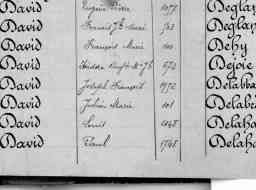 David Eugène 1077 Deglan
David Francis Jh Marie 743 Deglan
David François Marie 100 Dehy
David 572 Dejoie
David Joseph François 1972 Delabra
David Julien Marie 101 Delabr
David Louis 1048 Delaha
David Paul 1748 Delaha